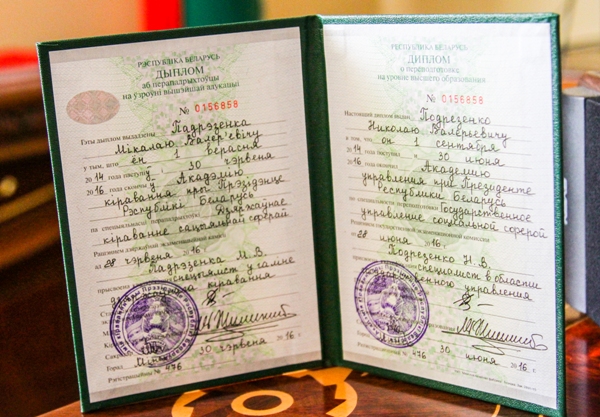 РЭСПУБЛІКА БЕЛАРУСЬ
ДЫПЛОМ
аб перападрыхтоўцы
на ўзроўні вышэйшай адукацыі
№ 0156858
Гэты дыплом выдадзены Падрэзенка
Мікалаю Валер'евічу
у тым, што ён 1 верасня
2014 паступ 30 чэрвеня
2016 скончы ў Акадэмію
кіравання пры Прэзідэнце
Рэспублікі Беларусь
па спецыяльнасці Дзяржаўнае
кіраванне сацыяльнай сферай
Рашэннем дзяржаўнай экзаменацыйнай камісіі
ад 28 чэрвеня 2016
Падрэзенка М.В.
прысвоена спецыяліст у галіне
кіравання
Горад Мінск 30 чэрвеня 2016 г.
Рэгістрацыйны № 476
РЕСПУБЛИКА БЕЛАРУСЬ
ДИПЛОМ
о переподготовке
на уровне высшего образования
№ 0156858
Настоящий диплом выдан Подрезенко
Николаю Валерьевичу
в том, что он 1 сентября
2014 поступил 30 июня
2016 окончил Академию
управления при Президенте
Республики Беларусь
по специальности Государственное
управление социальной сферой
Решением государственной экзаменационной комиссии
от 28 июня 2016
Подрезенко Н.В.
специалист в области
управления
30 июня 2016 г.
Регистрационный № 476